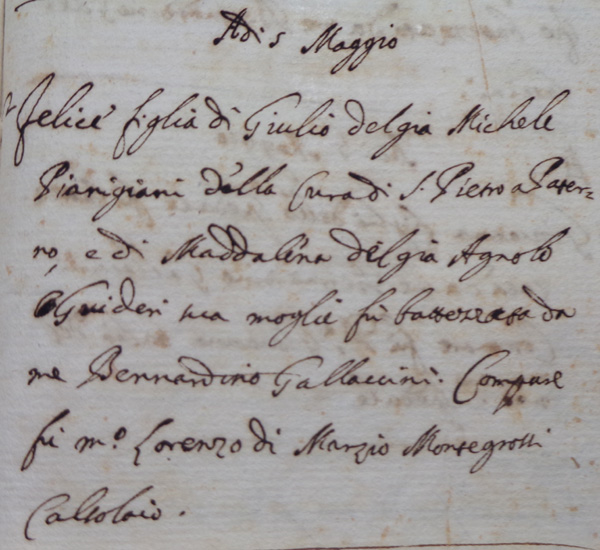 Adi 5 Maggio
Felice figlia di Giulio del già Michele
Pianigiani della Cura di S. Pietro a Pater=
no, e di Maddalena del già Agnolo
Guideri sua moglie fù battezzata da
me Bernardino Gallaccini. Compare
fù m.o Lorenzo di Marzio Montegrossi
Calzolaio.